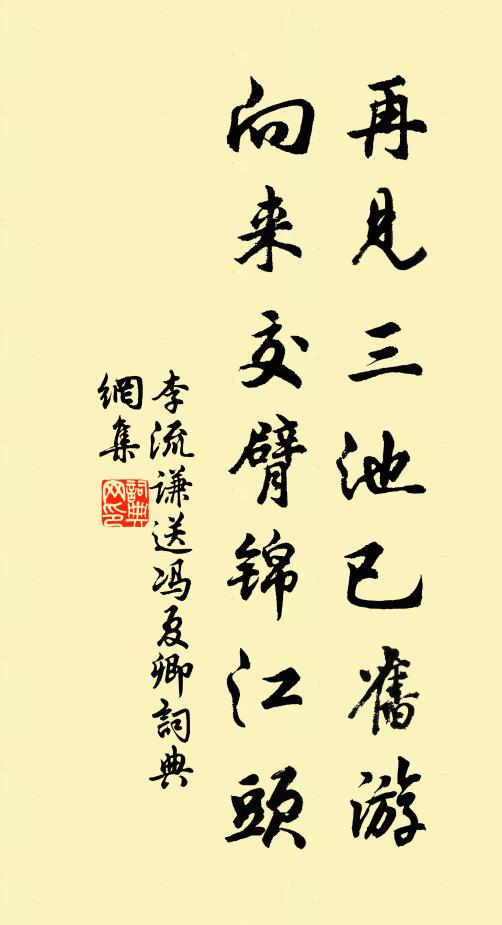 再见三池已舊游
向来交臂锦江頭
李流谦送冯夏卿詞典
網集
詞典網印